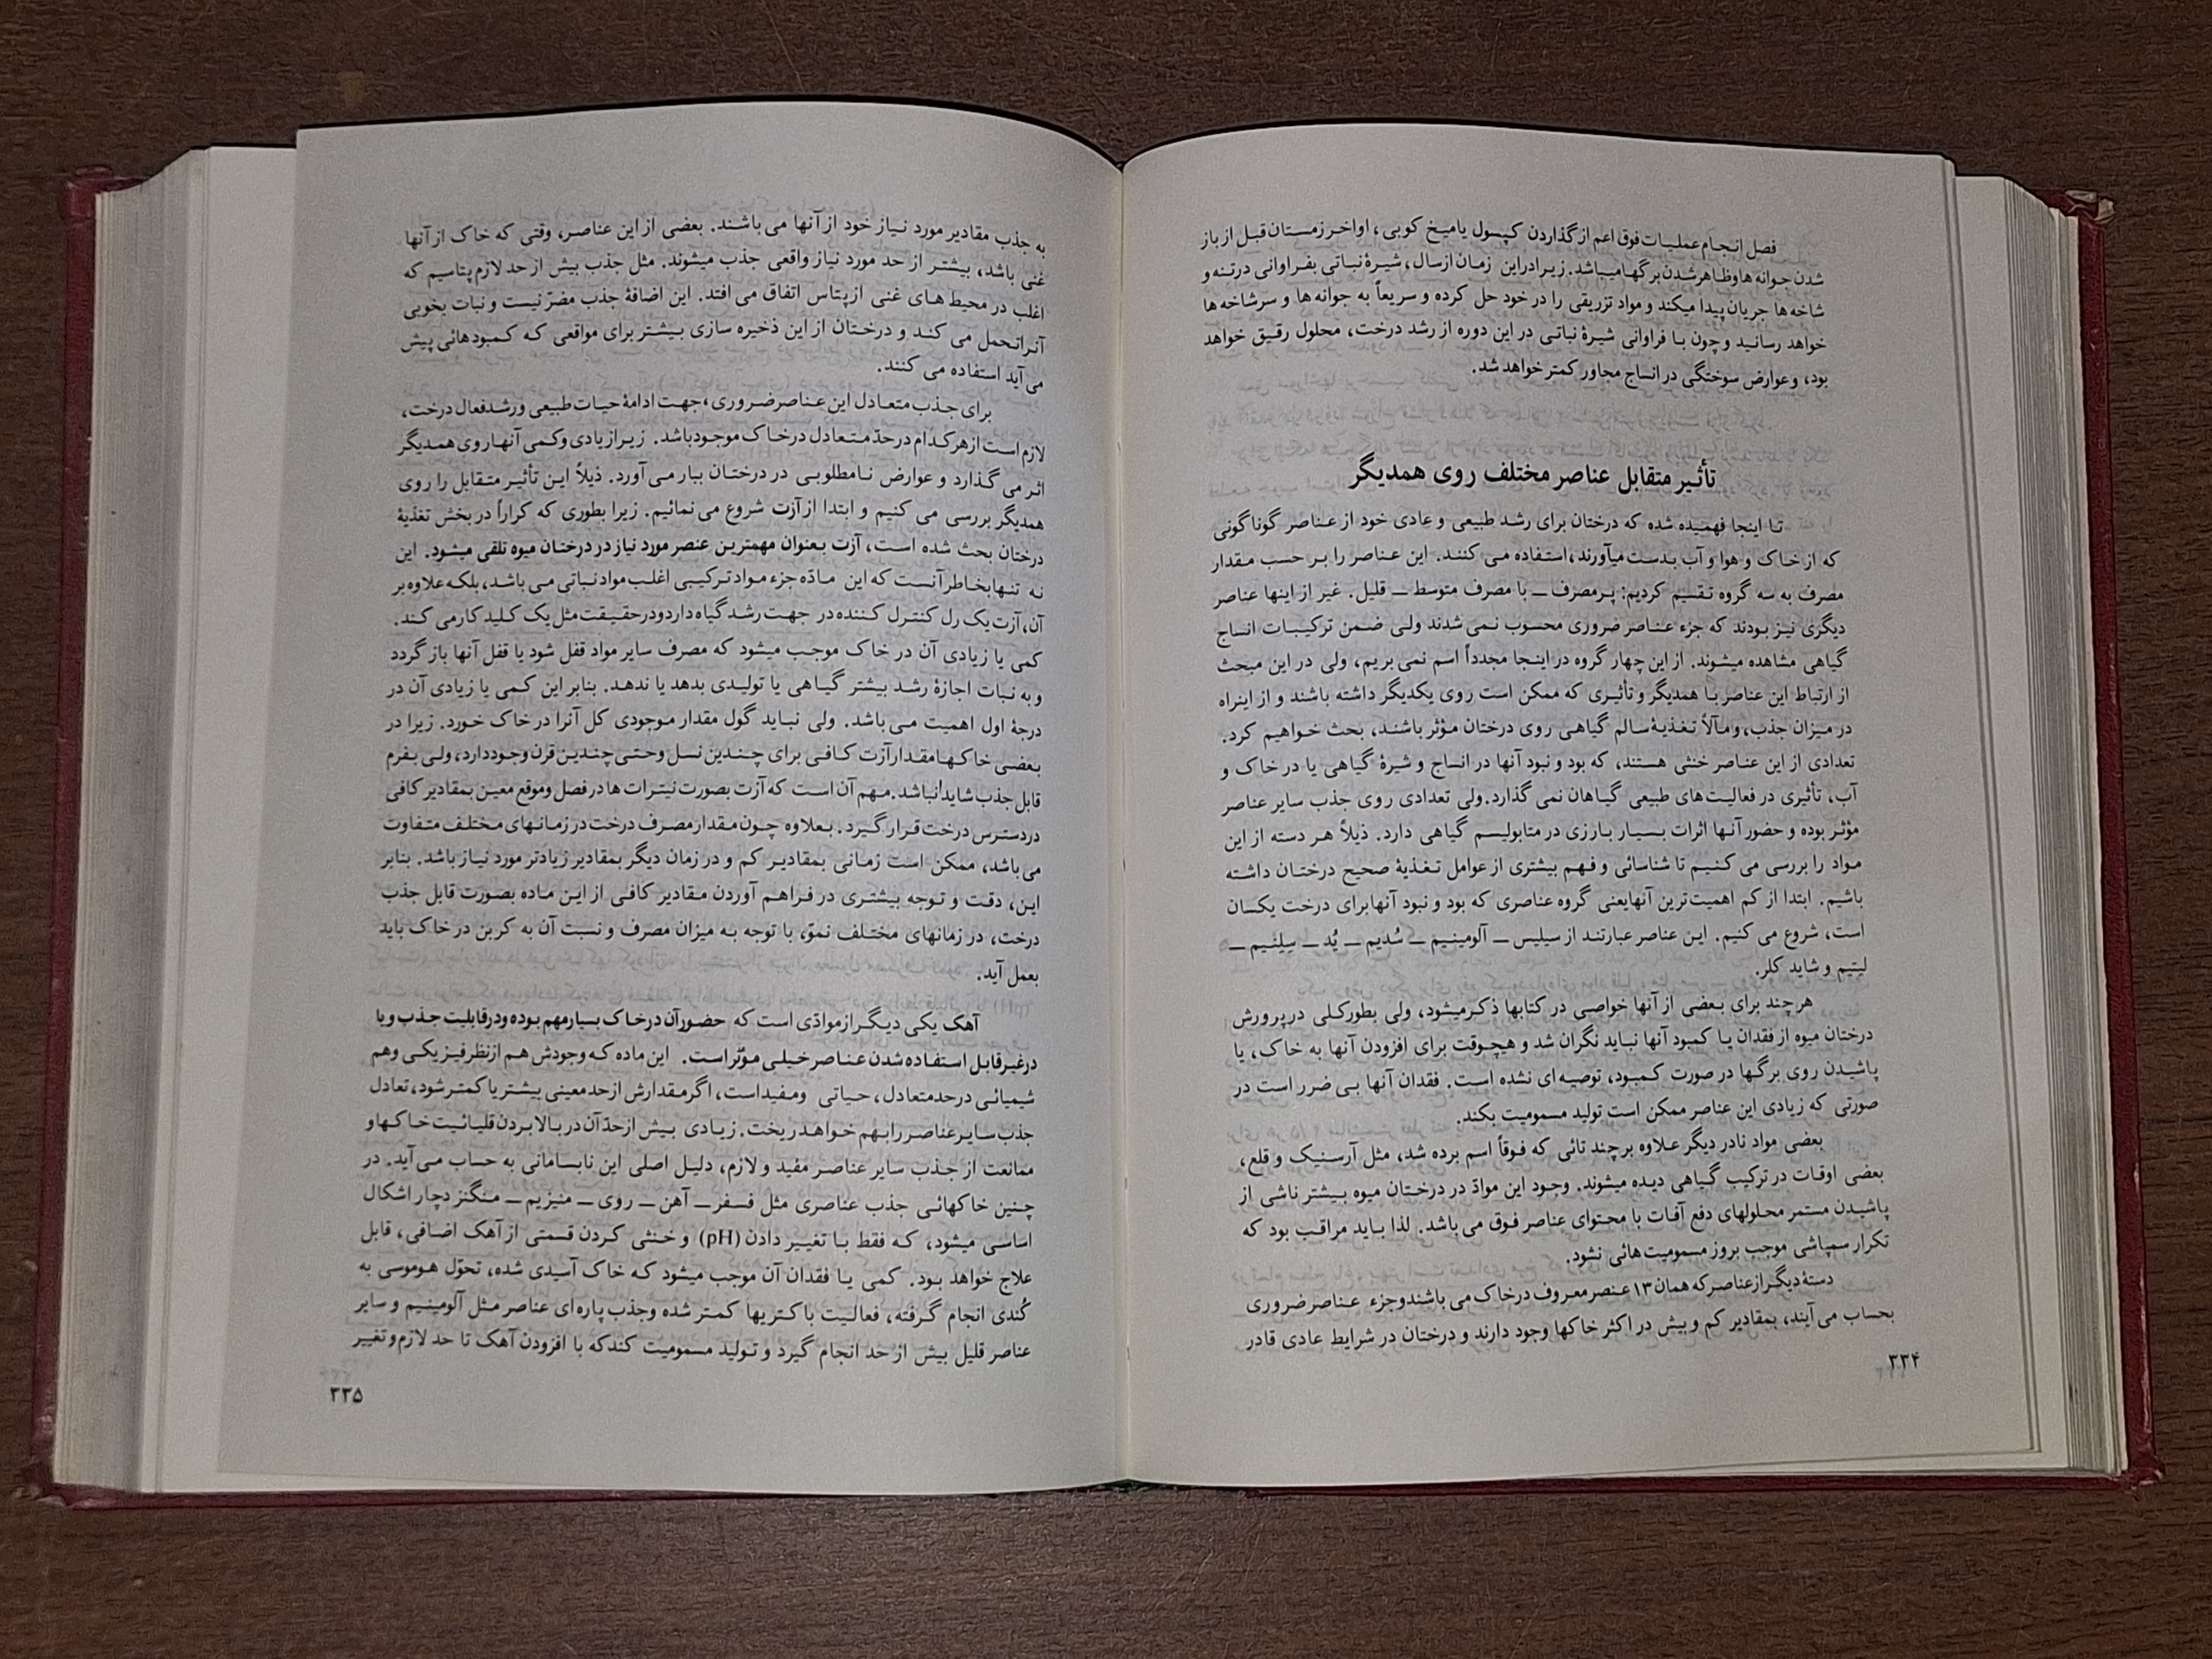 فصل انجام عملیات فوق اعم از گذاردن کپسول یا میخ کوبی، اواخر زمستان قبل از باز
شدن جوانه ها و ظاهر شدن برگها میباشد. زیرا در این زمان از سال، شیرهٔ نباتی بفراوانی در تنه و
شاخه ها جریان پیدا میکند و مواد تزریقی را در خود حل کرده و سریعاً به جوانه ها و سرشاخه ها
خواهد رسانید و چون با فراوانی شیرهٔ نباتی در این دوره از رشد درخت، محلول رقیق خواهد
بود، و عوارض سوختگی در انساج مجاور کمتر خواهد شد.
تأثیر متقابل عناصر مختلف روی همدیگر
تا اینجا فهمیده شده که درختان برای رشد طبیعی و عادی خود از عناصر گوناگونی
که از خاک و هوا و آب بدست میآورند، استفاده می کنند. این عناصر را بر حسب مقدار
مصرف به سه گروه تقسیم کردیم: پرمصرف ــ با مصرف متوسط ــ قلیل. غیر از اینها عناصر
دیگری نیز بودند که جزء عناصر ضروری محسوب نمی شدند ولی ضمن ترکیبات انساج
گیاهی مشاهده میشوند. از این چهار گروه در اینجا مجدداً اسم نمی بریم، ولی در این مبحث
از ارتباط این عناصر با همدیگر و تأثیری که ممکن است روی یکدیگر داشته باشند و از اینراه
در میزان جذب، و مآلاً تغذیهٔ سالم گیاهی روی درختان مؤثر باشند، بحث خواهیم کرد.
تعدادی از این عناصر خنثی هستند، که بود و نبود آنها در انساج و شیرهٔ گیاهی یا در خاک و
آب، تأثیری در فعالیت‌های طبیعی گیاهان نمی گذارد. ولی تعدادی روی جذب سایر عناصر
مؤثر بوده و حضور آنها اثرات بسیار بارزی در متابولیسم گیاهی دارد. ذیلاً هر دسته از این
مواد را بررسی می کنیم تا شناسائی و فهم بیشتری از عوامل تغذیهٔ صحیح درختان داشته
باشیم. ابتدا از کم اهمیت‌ترین آنها یعنی گروه عناصری که بود و نبود آنها برای درخت یکسان
است، شروع می کنیم. این عناصر عبارتند از سیلیس ــ آلومینیم ــ سُدیم ــ یُد ــ سِلِنیم ــ
لیتیم و شاید کلر.
هر چند برای بعضی از آنها خواصی در کتابها ذکر میشود، ولی بطور کلی در پرورش
درختان میوه از فقدان یا کمبود آنها نباید نگران شد و هیچوقت برای افزودن آنها به خاک، یا
پاشیدن روی برگها در صورت کمبود، توصیه ای نشده است. فقدان آنها بی ضرر است در
صورتی که زیادی این عناصر ممکن است تولید مسمومیت بکند.
بعضی مواد نادر دیگر علاوه بر چند تائی که فوقاً اسم برده شد، مثل آرسنیک و قلع،
بعضی اوقات در ترکیب گیاهی دیده میشوند. وجود این موادّ در درختان میوه بیشتر ناشی از
پاشیدن مستمر محلولهای دفع آفات با محتوای عناصر فوق می باشد. لذا باید مراقب بود که
تکرار سمپاشی موجب بروز مسمومیت هائی نشود.
دستهٔ دیگر از عناصر که همان ۱۳ عنصر معروف در خاک می باشند و جزء عناصر ضروری
بحساب می آیند، بمقادیر کم و بیش در اکثر خاکها وجود دارند و درختان در شرایط عادی قادر
۳۳۴
به جذب مقادیر مورد نیاز خود از آنها می باشند. بعضی از این عناصر، وقتی که خاک از آنها
غنی باشد، بیشتر از حد مورد نیاز واقعی جذب میشوند. مثل جذب بیش از حد لازم پتاسیم که
اغلب در محیط های غنی از پتاس اتفاق می افتد. این اضافهٔ جذب مضرّ نیست و نبات بخوبی
آنرا تحمل می کند و درختان از این ذخیره سازی بیشتر برای مواقعی که کمبودهائی پیش
می آید استفاده می کنند.
برای جذب متعادل این عناصر ضروری، جهت ادامهٔ حیات طبیعی و رشد فعال درخت،
لازم است از هر کدام در حدّ متعادل در خاک موجود باشد. زیرا زیادی و کمی آنها روی همدیگر
اثر می گذارد و عوارض نامطلوبی در درختان ببار می آورد. ذیلاً این تأثیر متقابل را روی
همدیگر بررسی می کنیم و ابتدا از آزت شروع می نمائیم. زیرا بطوری که کراراً در بخش تغذیهٔ
درختان بحث شده است، آزت بعنوان مهمترین عنصر مورد نیاز در درختان میوه تلقی میشود. این
نه تنها بخاطر آنست که این مادّه جزء مواد ترکیبی اغلب مواد نباتی می باشد، بلکه علاوه بر
آن، آزت یک رل کنترل کننده در جهت رشد گیاه دارد و در حقیقت مثل یک کلید کار می کند.
کمی یا زیادی آن در خاک موجب میشود که مصرف سایر مواد قفل شود یا قفل آنها باز گردد
و به نبات اجازهٔ رشد بیشتر گیاهی یا تولیدی بدهد یا ندهد. بنابر این کمی یا زیادی آن در
درجهٔ اول اهمیت می باشد. ولی نباید گول مقدار موجودی کل آنرا در خاک خورد. زیرا در
بعضی خاکها مقدار آزت کافی برای چندین نسل و حتی چندین قرن وجود دارد، ولی بفرم
قابل جذب شاید نباشد. مهم آن است که آزت بصورت نیترات ها در فصل و موقع معین بمقادیر کافی
در دسترس درخت قرار گیرد. بعلاوه چون مقدار مصرف درخت در زمانهای مختلف متفاوت
می باشد، ممکن است زمانی بمقادیر کم و در زمان دیگر بمقادیر زیادتر مورد نیاز باشد. بنابر
این، دقت و توجه بیشتری در فراهم آوردن مقادیر کافی از این ماده بصورت قابل جذب
درخت، در زمانهای مختلف نموّ، با توجه به میزان مصرف و نسبت آن به کربن در خاک باید
بعمل آید.
آهک یکی دیگر از موادّی است که حضور آن در خاک بسیار مهم بوده و در قابلیت جذب و یا
در غیر قابل استفاده شدن عناصر خیلی مؤثر است. این ماده که وجودش هم از نظر فیزیکی و هم
شیمیائی در حد متعادل، حیاتی و مفید است، اگر مقدارش از حد معینی بیشتر یا کمتر شود، تعادل
جذب سایر عناصر را بهم خواهد ریخت. زیادی بیش از حدّ آن در بالا بردن قلیائیت خاکها و
ممانعت از جذب سایر عناصر مفید و لازم، دلیل اصلی این نابسامانی به حساب می آید. در
چنین خاکهائی جذب عناصری مثل فسفر ــ آهن ــ روی ــ منیزیم ــ منگنز دچار اشکال
اساسی میشود، که فقط با تغییر دادن (pH) و خنثی کردن قسمتی از آهک اضافی، قابل
علاج خواهد بود. کمی یا فقدان آن موجب میشود که خاک آسیدی شده، تحوّل هوموسی به
کُندی انجام گرفته، فعالیت باکتریها کمتر شده و جذب پاره ای عناصر مثل آلومینیم و سایر
عناصر قلیل بیش از حد انجام گیرد و تولید مسمومیت کند که با افزودن آهک تا حد لازم و تغییر
۳۳۵